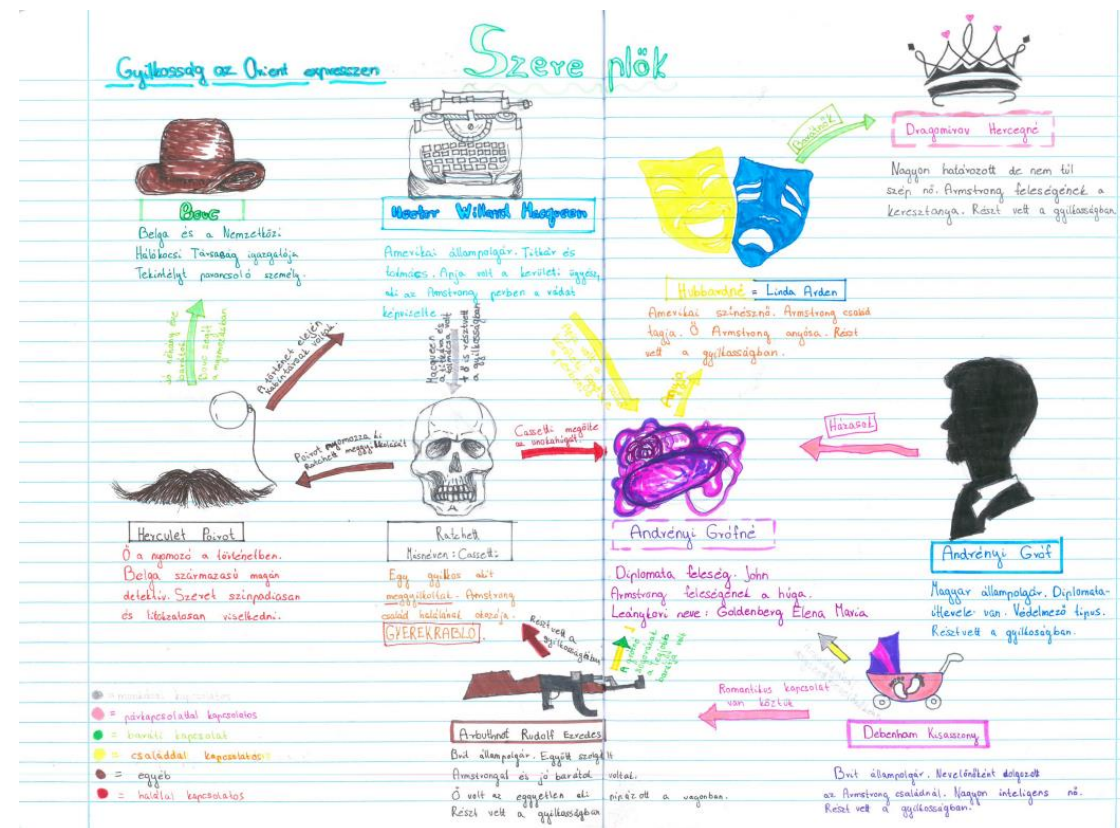 Gyilkosság az Orient expresszen
Szereplők
Bouc
Belga és a Nemzetközi
Hálókocsi Társaság igazgatója
Tekintélyt parancsoló személy.
Hector Willard Macqueen
Amerikai állampolgár. Titkár és
tolmács. Apja volt a kerületi ügyész,
aki az Armstrong perben a vádat
képviselte.
Barátnők
Dragomirov Hercegné
Nagyon határozott de nem túl
szép nő. Armstrong feleségének a
keresztanya. Részt vett a gyilkosságban
Hubbardné = Linda Arden
Amerikai színésznő. Armstrong család
tagja. Ő Armstrong anyósa. Részt
vett a gyilkosságban.
Bouc segít
a nyomozásban
A történet elején
kabintársak voltak.
Macqueen
a titkára és
tolmácsa volt
+ ő is résztvett
a gyilkosságban
Anyja
Házasok
Poirot nyomozza ki
Ratchett meggyilkolását
Cassetti megölte
az unokahúgát.
Herculet Poirot
Ő a nyomozó a történetben.
Belga származású magán
detektív. Szeret színpadiasan
és titokzatosan viselkedni.
Ratchett
Másnéven: Cassetti
Egy gyilkos akit
meggyilkoltak. Armstrong
család halálának okozója.
GYEREKRABLÓ.
Andrényi Grófné
Diplomata feleség. John
Armstrong feleségének a húga.
Leánykori neve: Goldenberg Elena Maria
Andrényi Gróf
Magyar állampolgár. Diplomata-
útlevele van. Védelmező típus.
Részt vett a gyilkoságban.
Részt vett a
gyilkosságában
Romantikus kapcsolat
van köztük
Arbuthnot Rudolf Ezredes
Brit állampolgár. Együtt szolgált
Armstrongal és jó barátok voltak.
Ő volt az eggyetlen aki pipázott a vagonban.
Részt vett a gyilkosságban
Debenham Kisasszony
Brit állampolgár. Nevelőnőként dolgozott
az Armstrong családnál. Nagyon inteligens nő.
Részt vett a gyilkosságban.
= munkához kapcsolatos
= párkapcsolattal kapcsolatos
= baráti kapcsolat
= családdal kapcsolatos
= egyéb
= halállal kapcsolatos